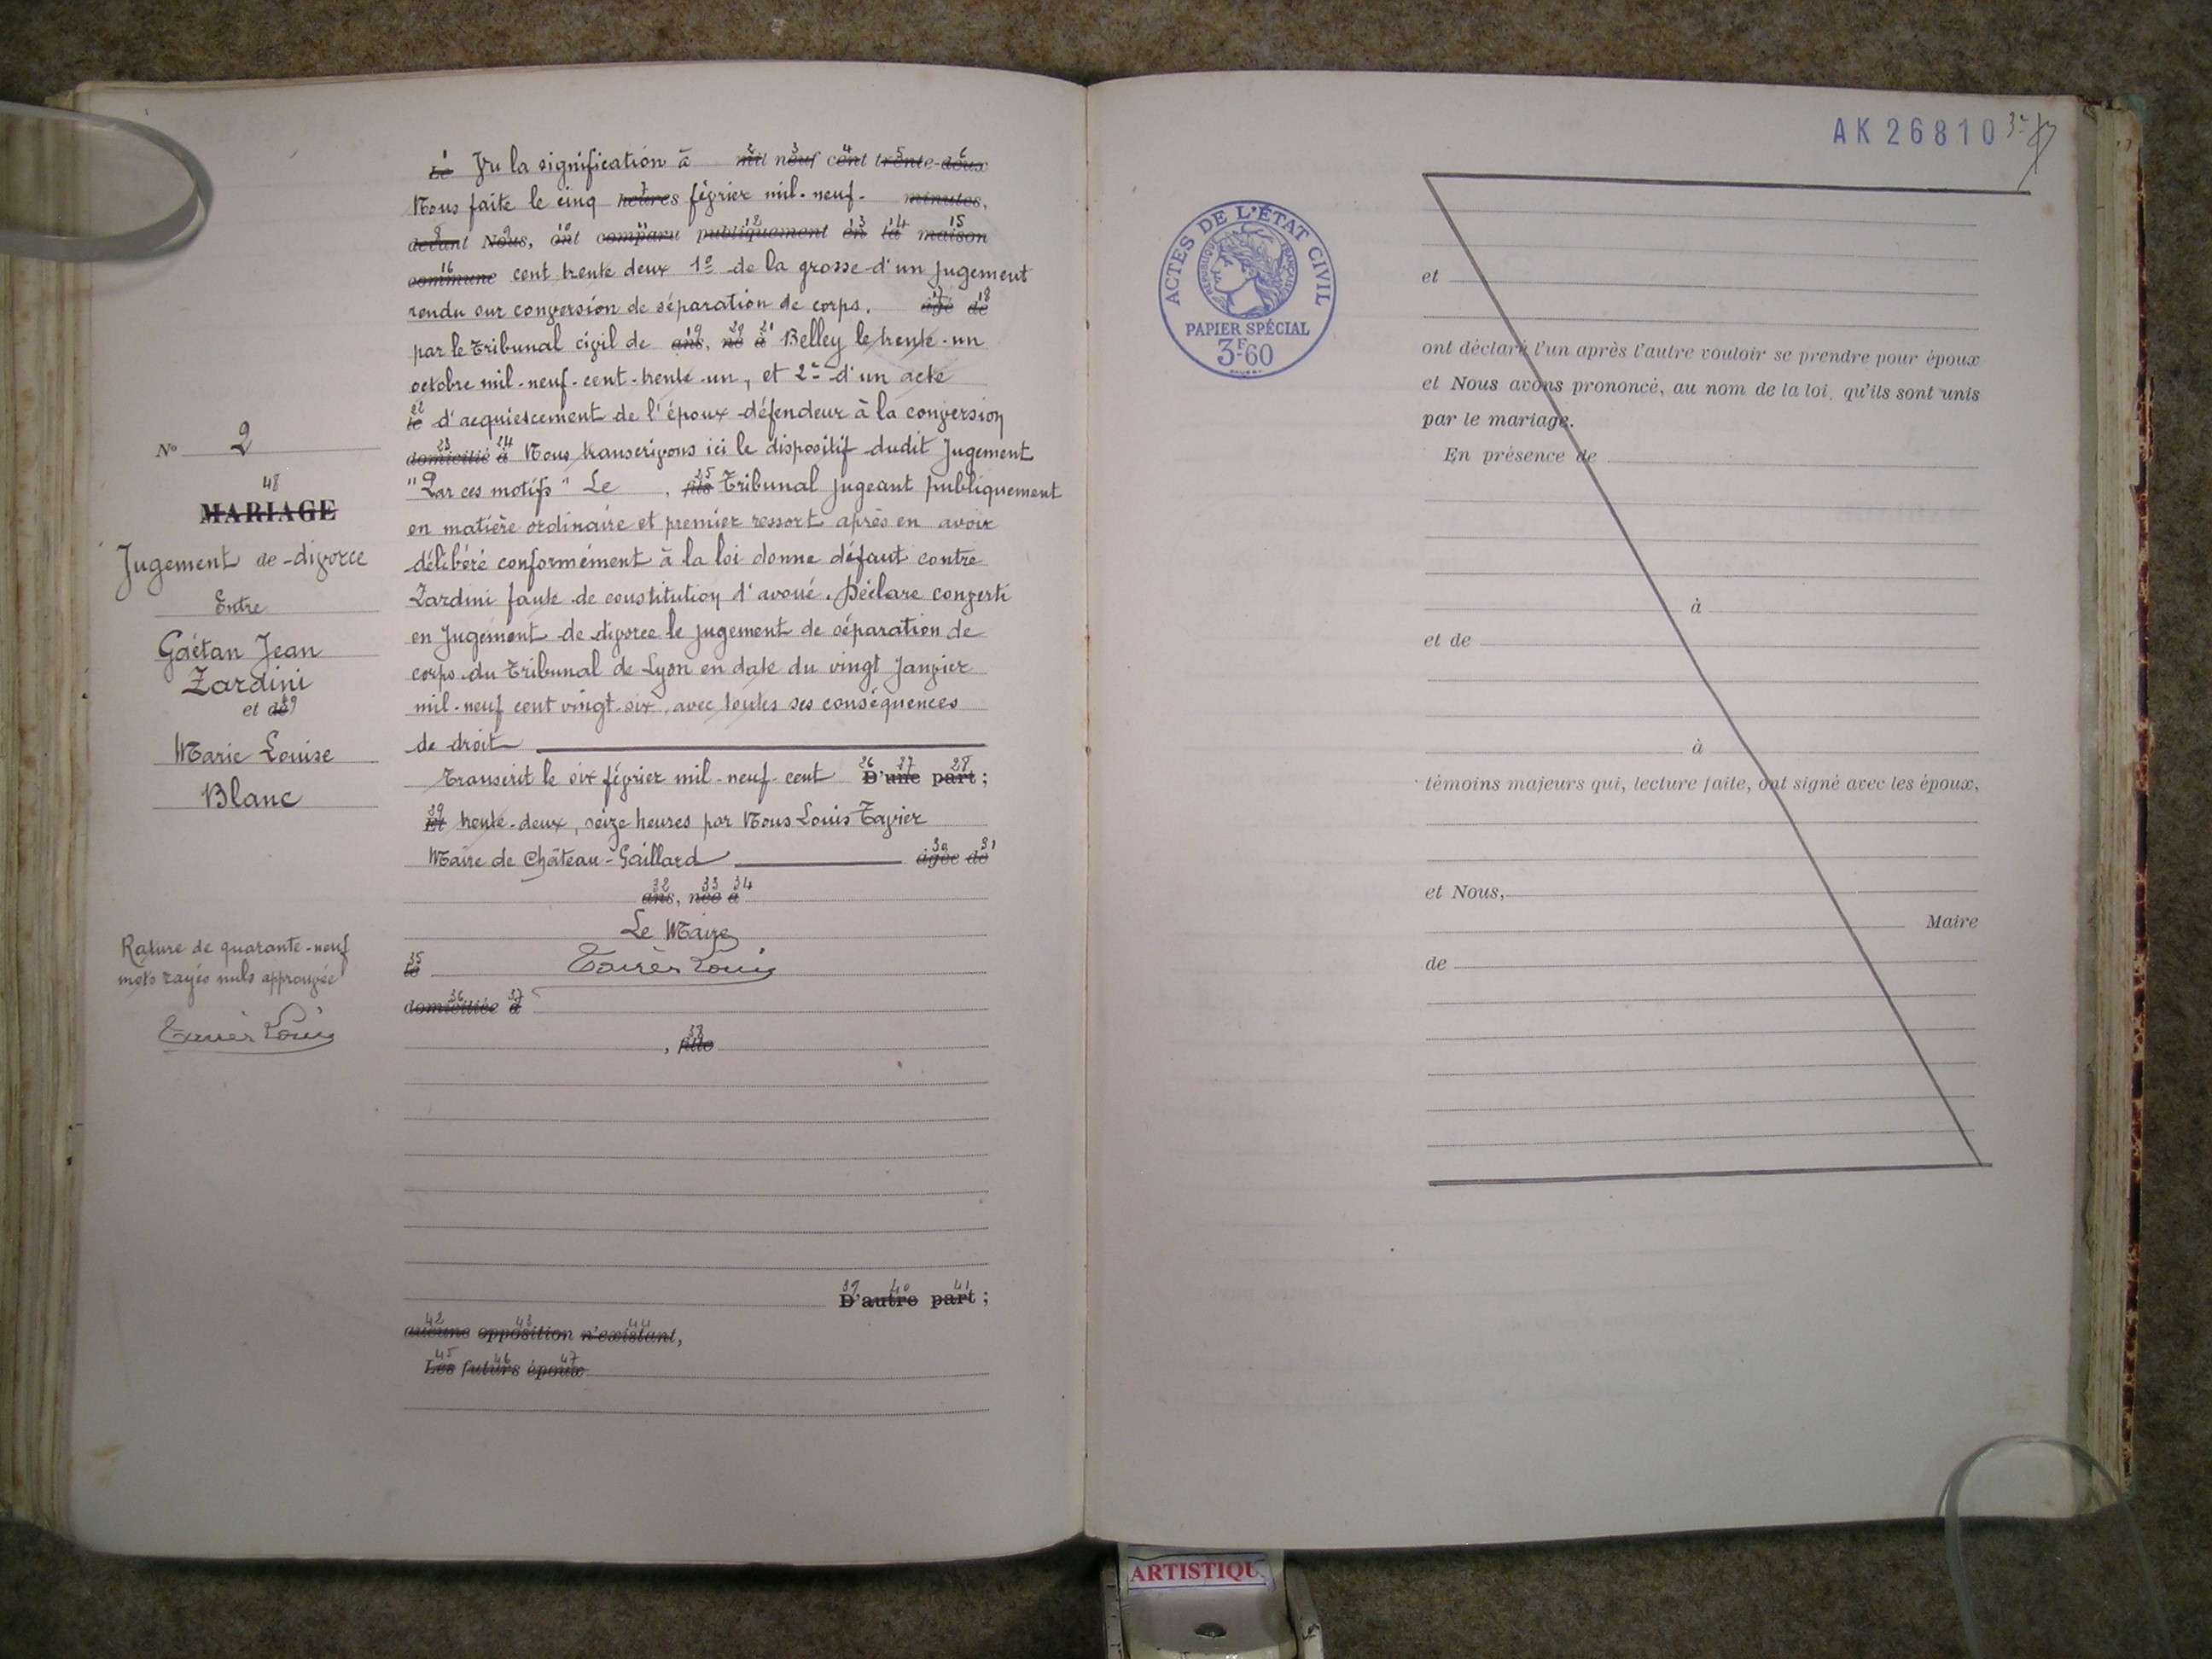 N° 2
48
MARIAGE
Jugement de divorce
Entre
Gaétan Jean
Zardini
et de 49
Marie Louise
Blanc
Rature de quarante-neuf
mots rayés nuls approuvée
Tavier Louis
1 2 3 4 5 6
Le Vu la signification à mil neuf cent trente-deux
7
Nous faite le cinq heures février mil-neuf- minutes,
8 9 10 11 12 13 14 15
devant Nous, ont comparu publiquement en la maison
16
commune cent trente deux 1º de la grosse d'un Jugement
17 18
rendu sur conversion de séparation de corps. âgé de
19 20 21
par le Tribunal civil de ans, né à Belley le trente-un
octobre mil-neuf-cent-trente-un, et 2º d'un acte
22
le d'acquiescement de l'époux défendeur à la conversion
23 24
domicilié à Nous transcrivons ici le dispositif dudit Jugement
25
"Par ces motifs" Le , fils Tribunal jugeant publiquement
en matière ordinaire et premier ressort après en avoir
délibéré conformément à la loi donne défaut contre
Zardini faute de constitution d'avoué. Déclare converti
en Jugement de divorce le jugement de séparation de
corps du Tribunal de Lyon en date du vingt Janvier
mil-neuf cent vingt-six, avec toutes ses conséquences
de droit
26 27 28
Transcrit le six février mil-neuf-cent D'une part ;
29
Et trente-deux, seize heures par Nous Louis Tavier
30 31
Maire de Château-Gaillard âgée de
32 33 34
ans, née à
Le Maire
35
le Tavier Louis
36 37
domiciliée à
38
, fille
39 40 41
D'autre part ;
42 43 44
aucune opposition n'existant,
45 46 47
Les futurs époux
AK 26810
ACTES DE L'ÉTAT CIVIL
RÉPUBLIQUE FRANÇAISE
PAPIER SPÉCIAL
3F60
et
ont déclaré l'un après l'autre vouloir se prendre pour époux
et Nous avons prononcé, au nom de la loi, qu'ils sont unis
par le mariage.
En présence de
à
et de
à
témoins majeurs qui, lecture faite, ont signé avec les époux,
et Nous,
Maire
de
ARTISTIQU